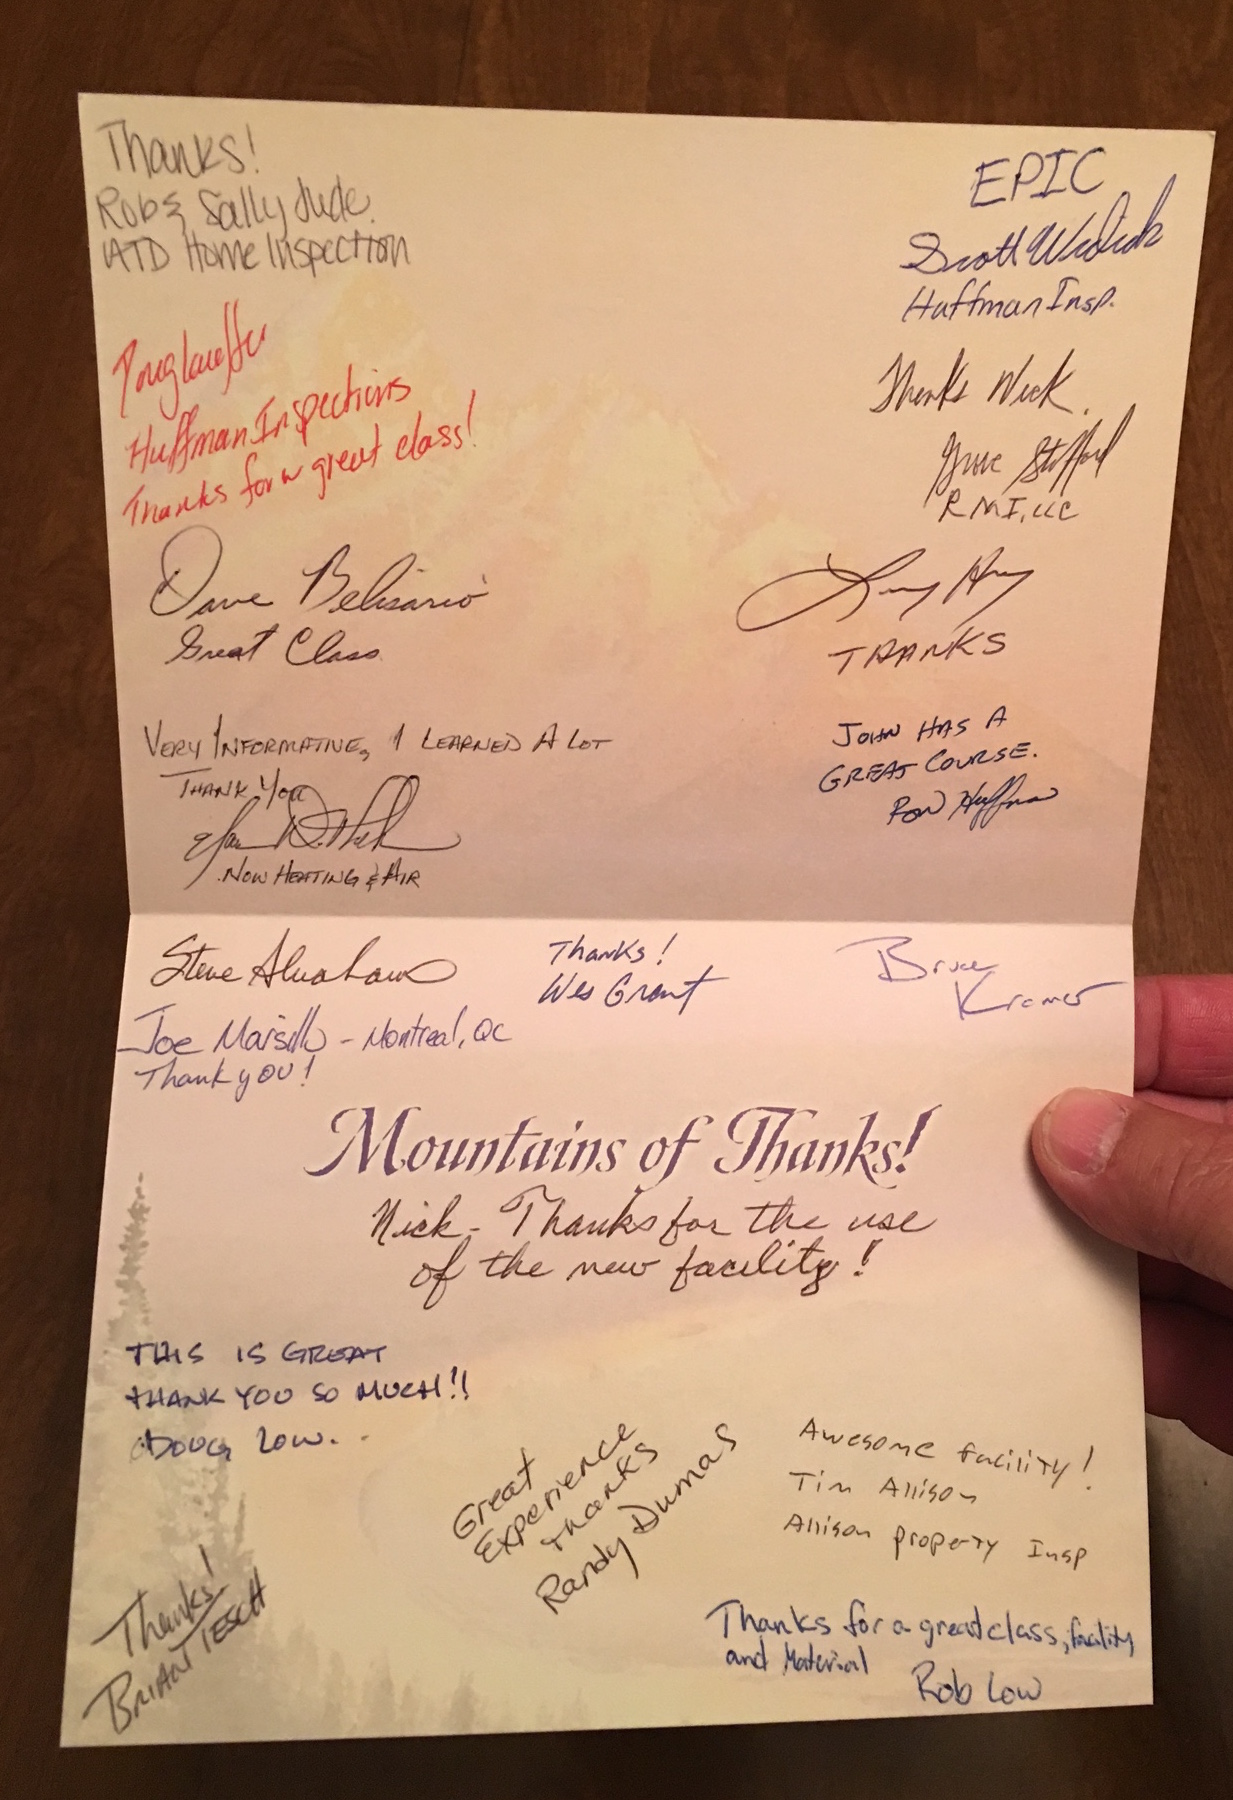 Thanks!
Rob & Sally Jude
ATD Home Inspection
EPIC
Scott
Huffman Insp.
Huffman Inspections
Thanks for a great class!
Thanks Nick.
Stafford
RMI, LLC
Dave Belisario
Great Class
THANKS
VERY INFORMATIVE, I LEARNED A LOT
THANK YOU
NOW HEATING & AIR
JOHN HAS A
GREAT COURSE.
RON Huffman
Steve Abraham
Joe Marsillo - Montreal, QC
Thank you!
Thanks!
Wes Grant
Bruce
Kramer
Mountains of Thanks!
Nick - Thanks for the use
of the new facility!
THIS IS GREAT
THANK YOU SO MUCH!!
DOUG LOW.
Great
Experience
Thanks
Randy Dumas
Awesome facility!
Tim Allison
Allison property Insp
Thanks!
BRIAN TESCH
Thanks for a great class, facility
and Material
Rob Low